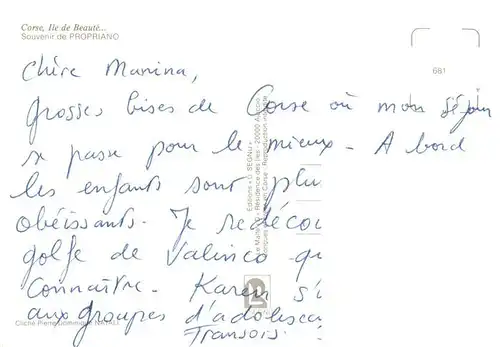 Corse, Ile de Beauté...
Souvenir de PROPRIANO
681
Chère Manina,
grosses bises de Corse où mon séjour
se passe pour le mieux - A bord
les enfants sont plu
obéissants. Je redécou
golfe de Valinco qu
Connaître. Karen s'i
aux groupes d'adolesca
Transois.
Editions « U. SEGALI »
Résidence des Iles - 20000 Ajaccio
Reproduction interdite
Cliché Pierre Dominique NATALI